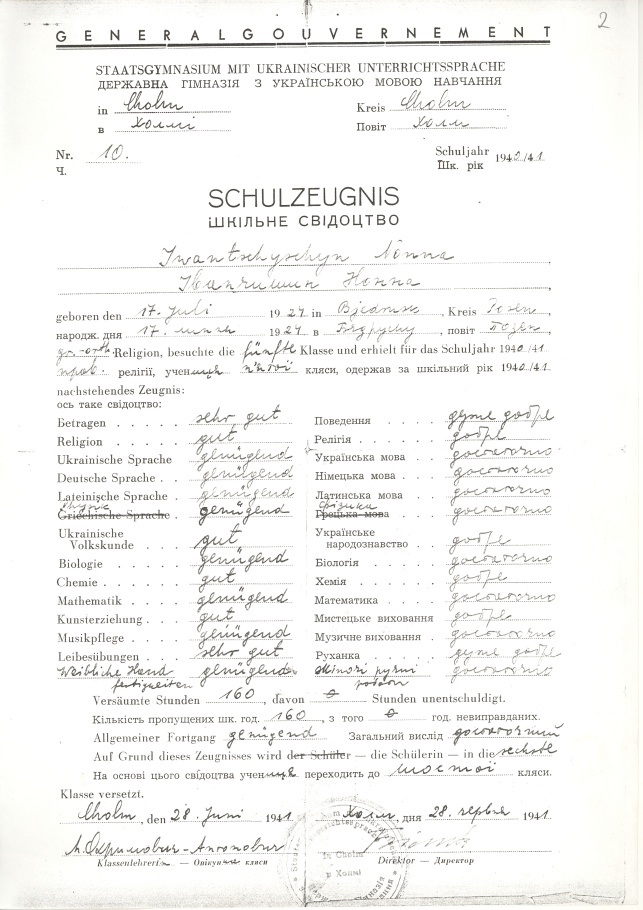 2
GENERALGOUVERNEMENT
STAATSGYMNASIUM MIT UKRAINISCHER UNTERRICHTSSPRACHE
ДЕРЖАВНА ГІМНАЗІЯ З УКРАЇНСЬКОЮ МОВОЮ НАВЧАННЯ
in Cholm Kreis Cholm
в Холмі Повіт Холм
Nr. 10. Schuljahr 1940/41
Ч. Шк. рік
SCHULZEUGNIS
ШКІЛЬНЕ СВІДОЦТВО
Iwantschyschyn Nonna
Іванчишин Нонна
geboren den 17. Juli 1924 in , Kreis Posen,
народж. дня 17. липня 1924 в , повіт Позен,
gr.-orth. Religion, besuchte die fünfte Klasse und erhielt für das Schuljahr 1940/41
прав. релігії, учениця п'ятої кляси, одержав за шкільний рік 1940/41
nachstehendes Zeugnis:
ось таке свідоцтво:
Betragen . . . . . sehr gut Поведення . . . . дуже добре
Religion . . . . . gut Релігія . . . . . . добре
Ukrainische Sprache genügend Українська мова . . достаточно
Deutsche Sprache . . genügend Німецька мова . . . достаточно
Lateinische Sprache genügend Латинська мова . . достаточно
Physik фізика
Griechische Sprache genügend Грецька мова . . . достаточно
Ukrainische Українське
Volkskunde . . . gut народознавство . . добре
Biologie . . . . . genügend Біологія . . . . . достаточно
Chemie . . . . . . gut Хемія . . . . . . добре
Mathematik . . . . genügend Математика . . . . достаточно
Kunsterziehung . . . gut Мистецьке виховання . добре
Musikpflege . . . . genügend Музичне виховання . . достаточно
Leibesübungen . . . sehr gut Руханка . . . . . дуже добре
Weibliche Hand genügend Жіночі ручні достаточно
fertigkeiten роботи
Versäumte Stunden 160, davon 0 Stunden unentschuldigt.
Кількість пропущених шк. год. 160, з того 0 год. невиправданих.
Allgemeiner Fortgang genügend Загальний вислід достаточний
Auf Grund dieses Zeugnisses wird der Schüler — die Schülerin — in die sechste
На основі цього свідоцтва учениця переходить до шостої кляси.
Klasse versetzt.
Cholm, den 28. Juni 1941 Холм, дня 28. червня 1941
Klassenlehrerin — Опікунка кляси Direktor — Директор
in Cholm
в Холмі